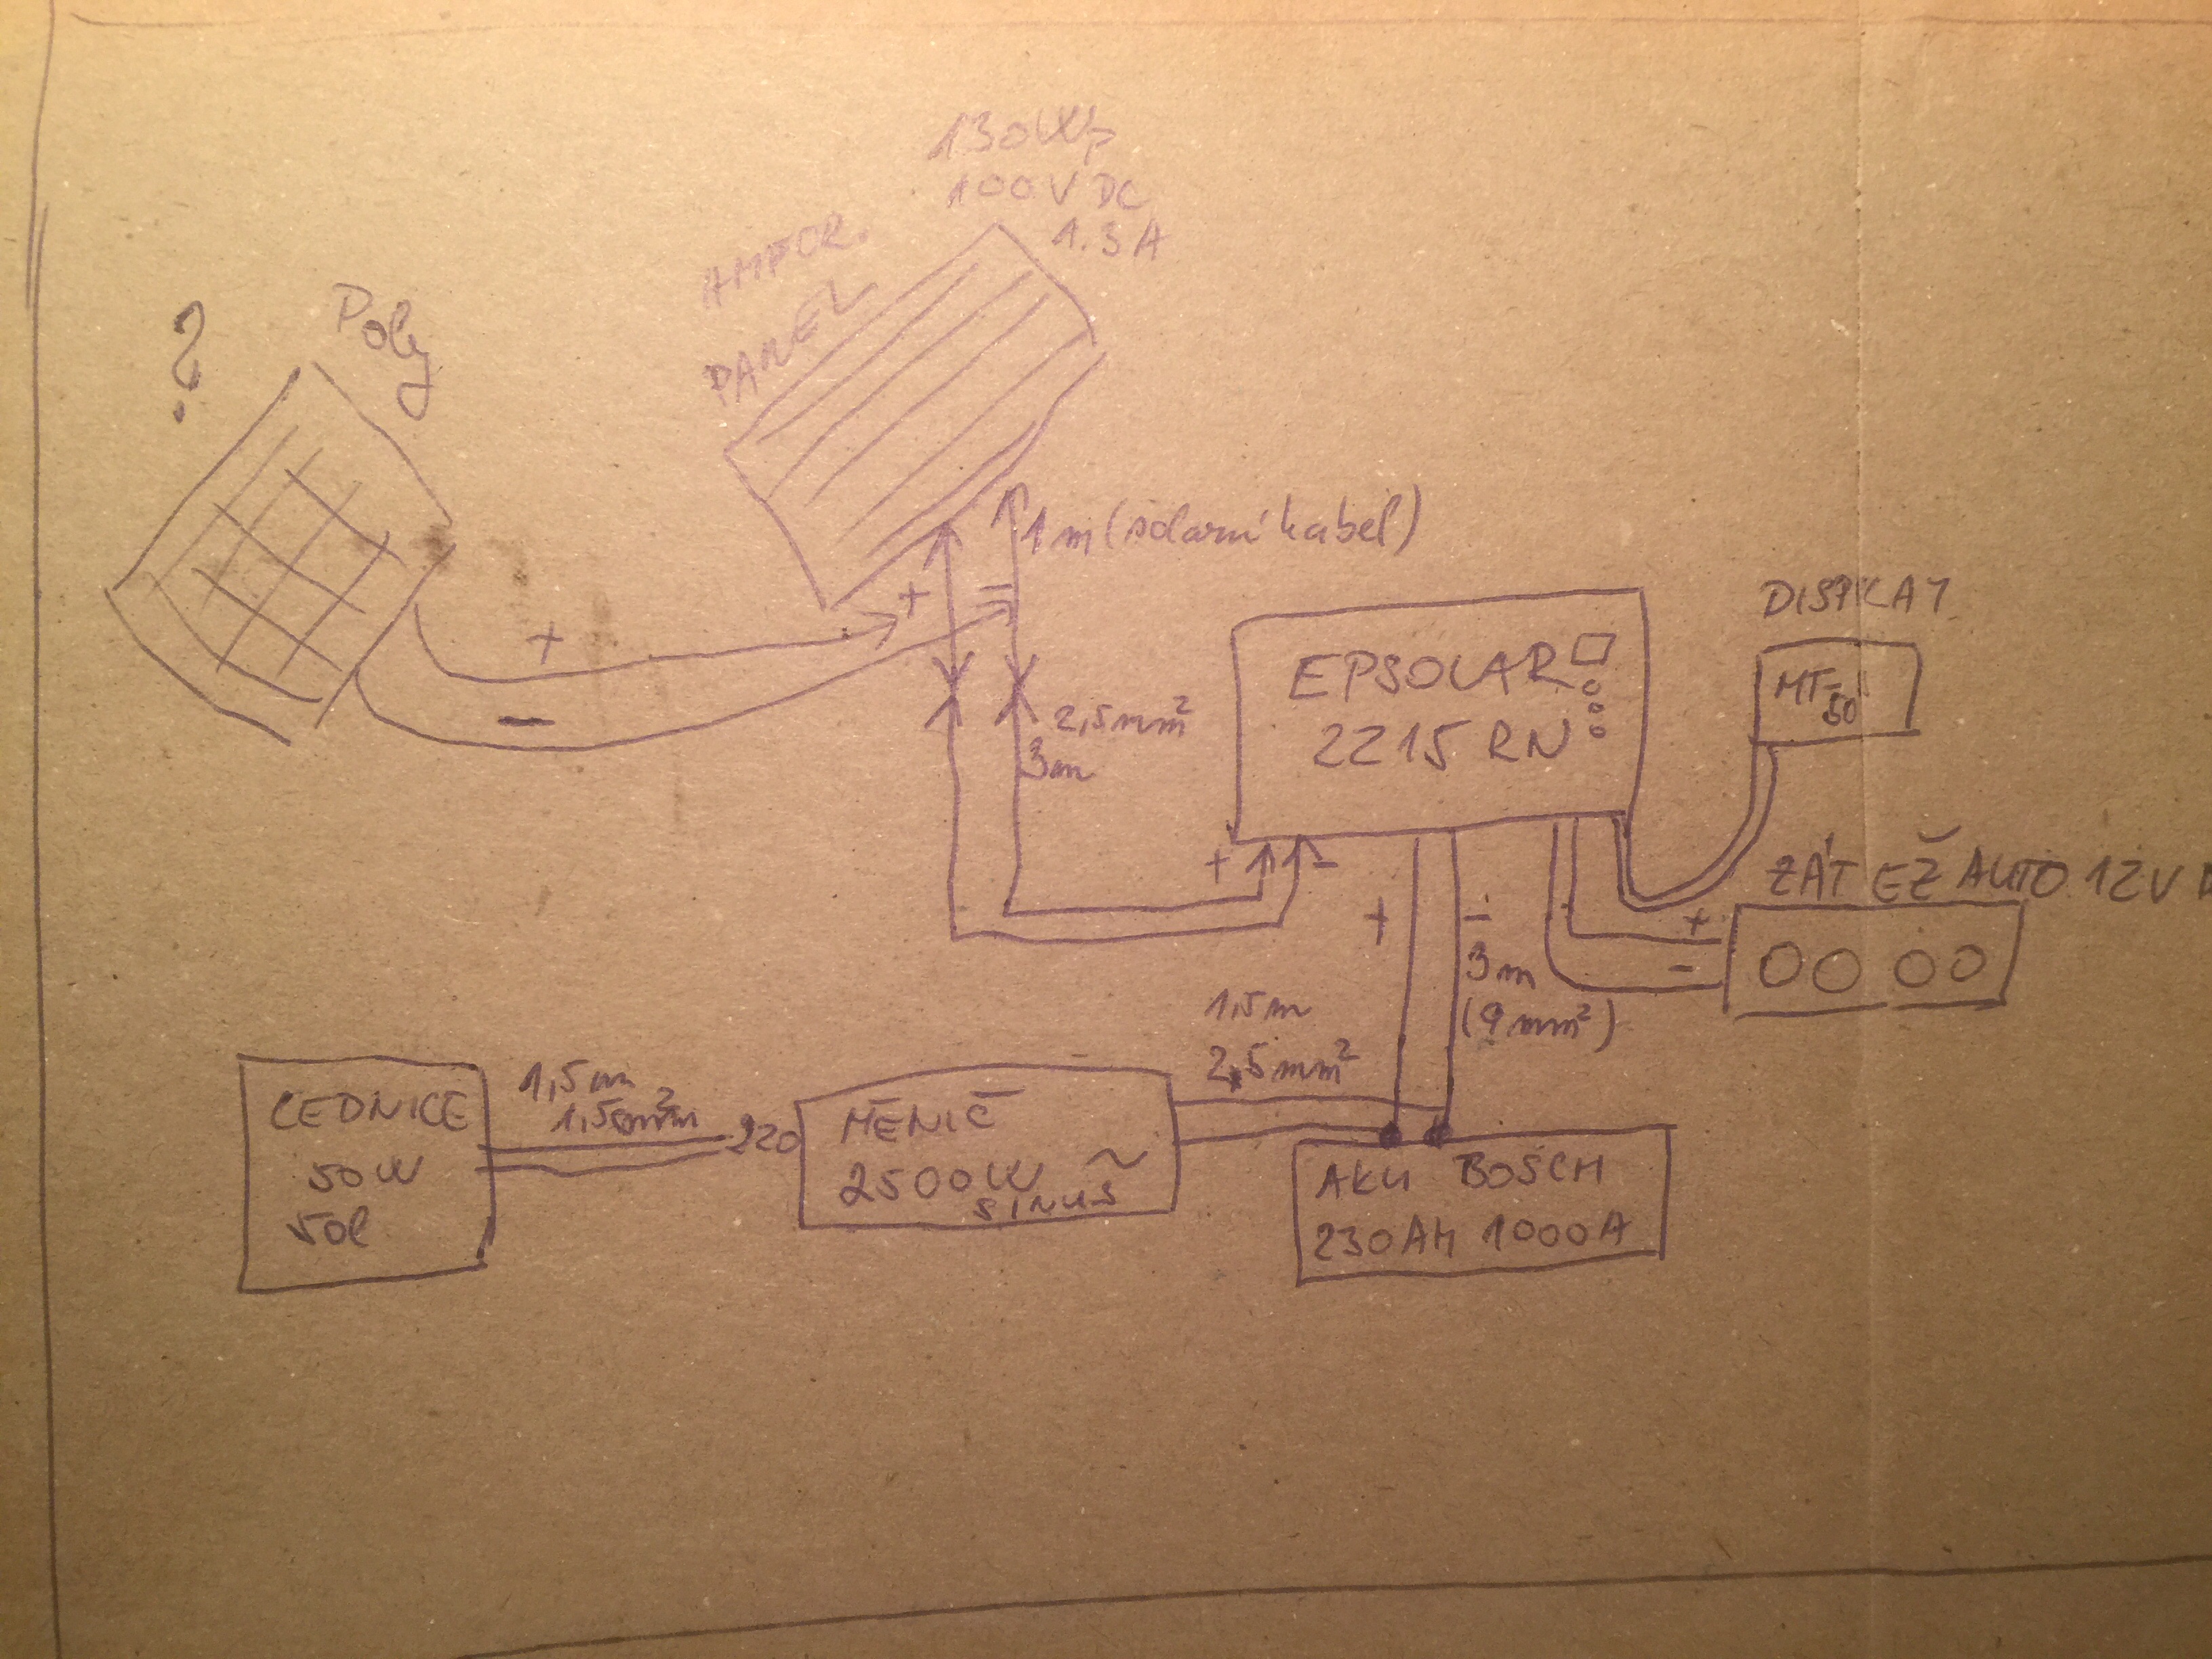 130Wp
100V DC
1.3A
AMFOR.
PANEL
?
Poly
1m (solarní kabel)
+
=
+
-
2,5mm²
3m
EPSOLAR
2215 RN
DISPLAY
MT-50
+ -
ZÁTĚŽ AUTO 12V D
+
-
+ -
3m
(9mm²)
1,5m
2,5mm²
LEDNICE
50W
50l
1,5m
220
MĚNIČ
2500W ~
SINUS
AKU BOSCH
230AH 1000A